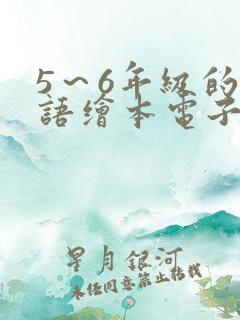 5～6年級的
語繪本電子
星月銀河
未任同意禁止轉載